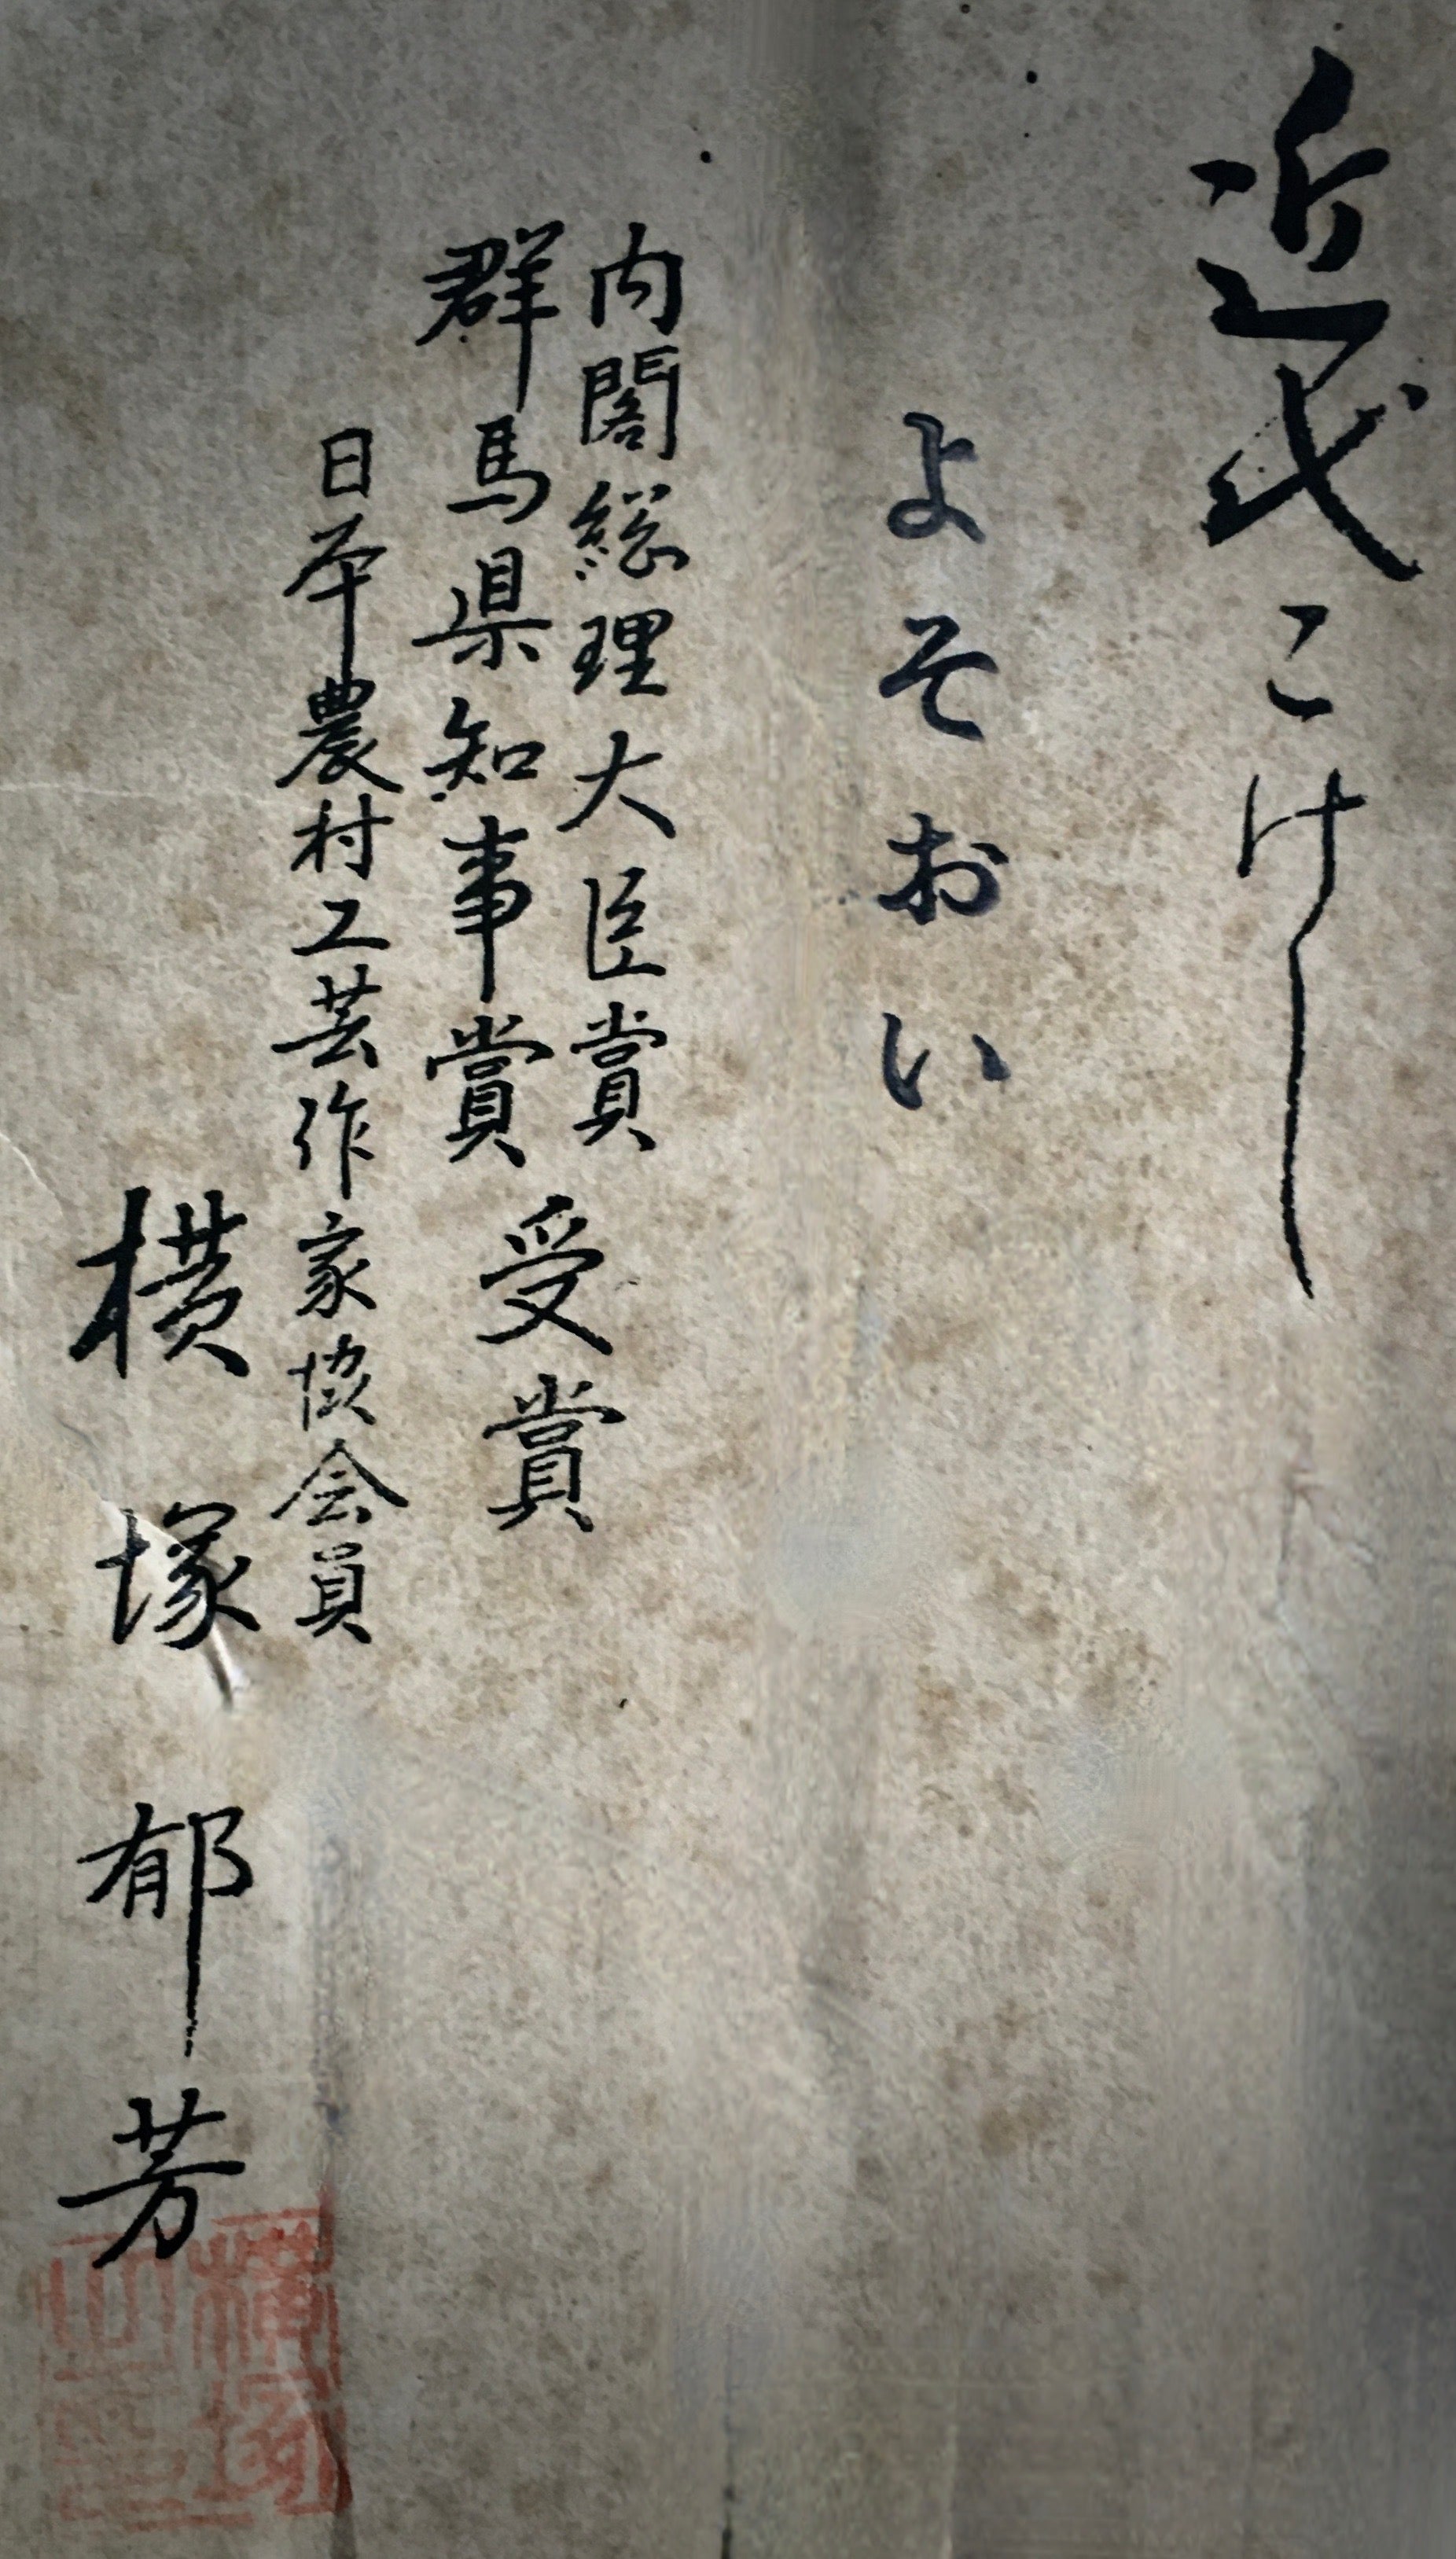 近代こけし
よそおい
内閣総理大臣賞
群馬県知事賞
受賞
日本農村工芸作家協会員
横塚郁芳
横塚